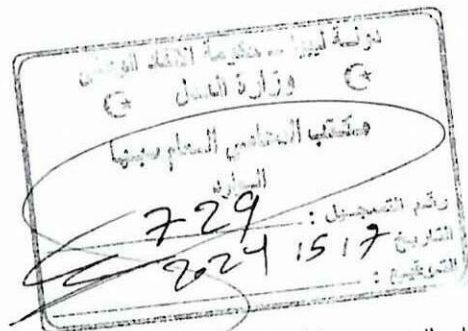 دولة ليبيا - حكومة الوفاق الوطني
وزارة العدل
مكتب المحامي العام سبها
رقم التسجيل : 729
التاريخ 17 / 5 / 2024
التوقيع :